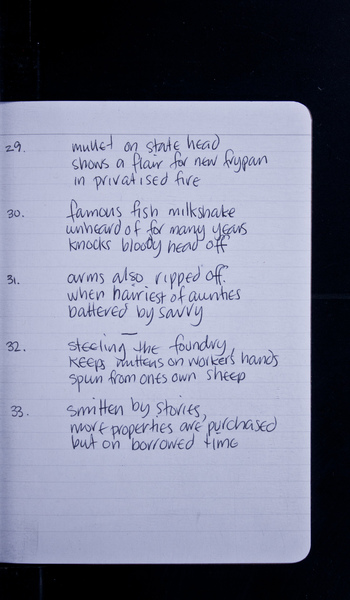 29. mullet on state head
shows a flair for new frypan
in privatised fire
30. famous fish milkshake
unheard of for many years
knocks bloody head off
31. arms also ripped off
when hairiest of aunties
battered by savvy
32. steeling the foundry
keeps mittens on workers hands
spun from ones own sheep
33. smitten by stories,
more properties are purchased
but on borrowed time